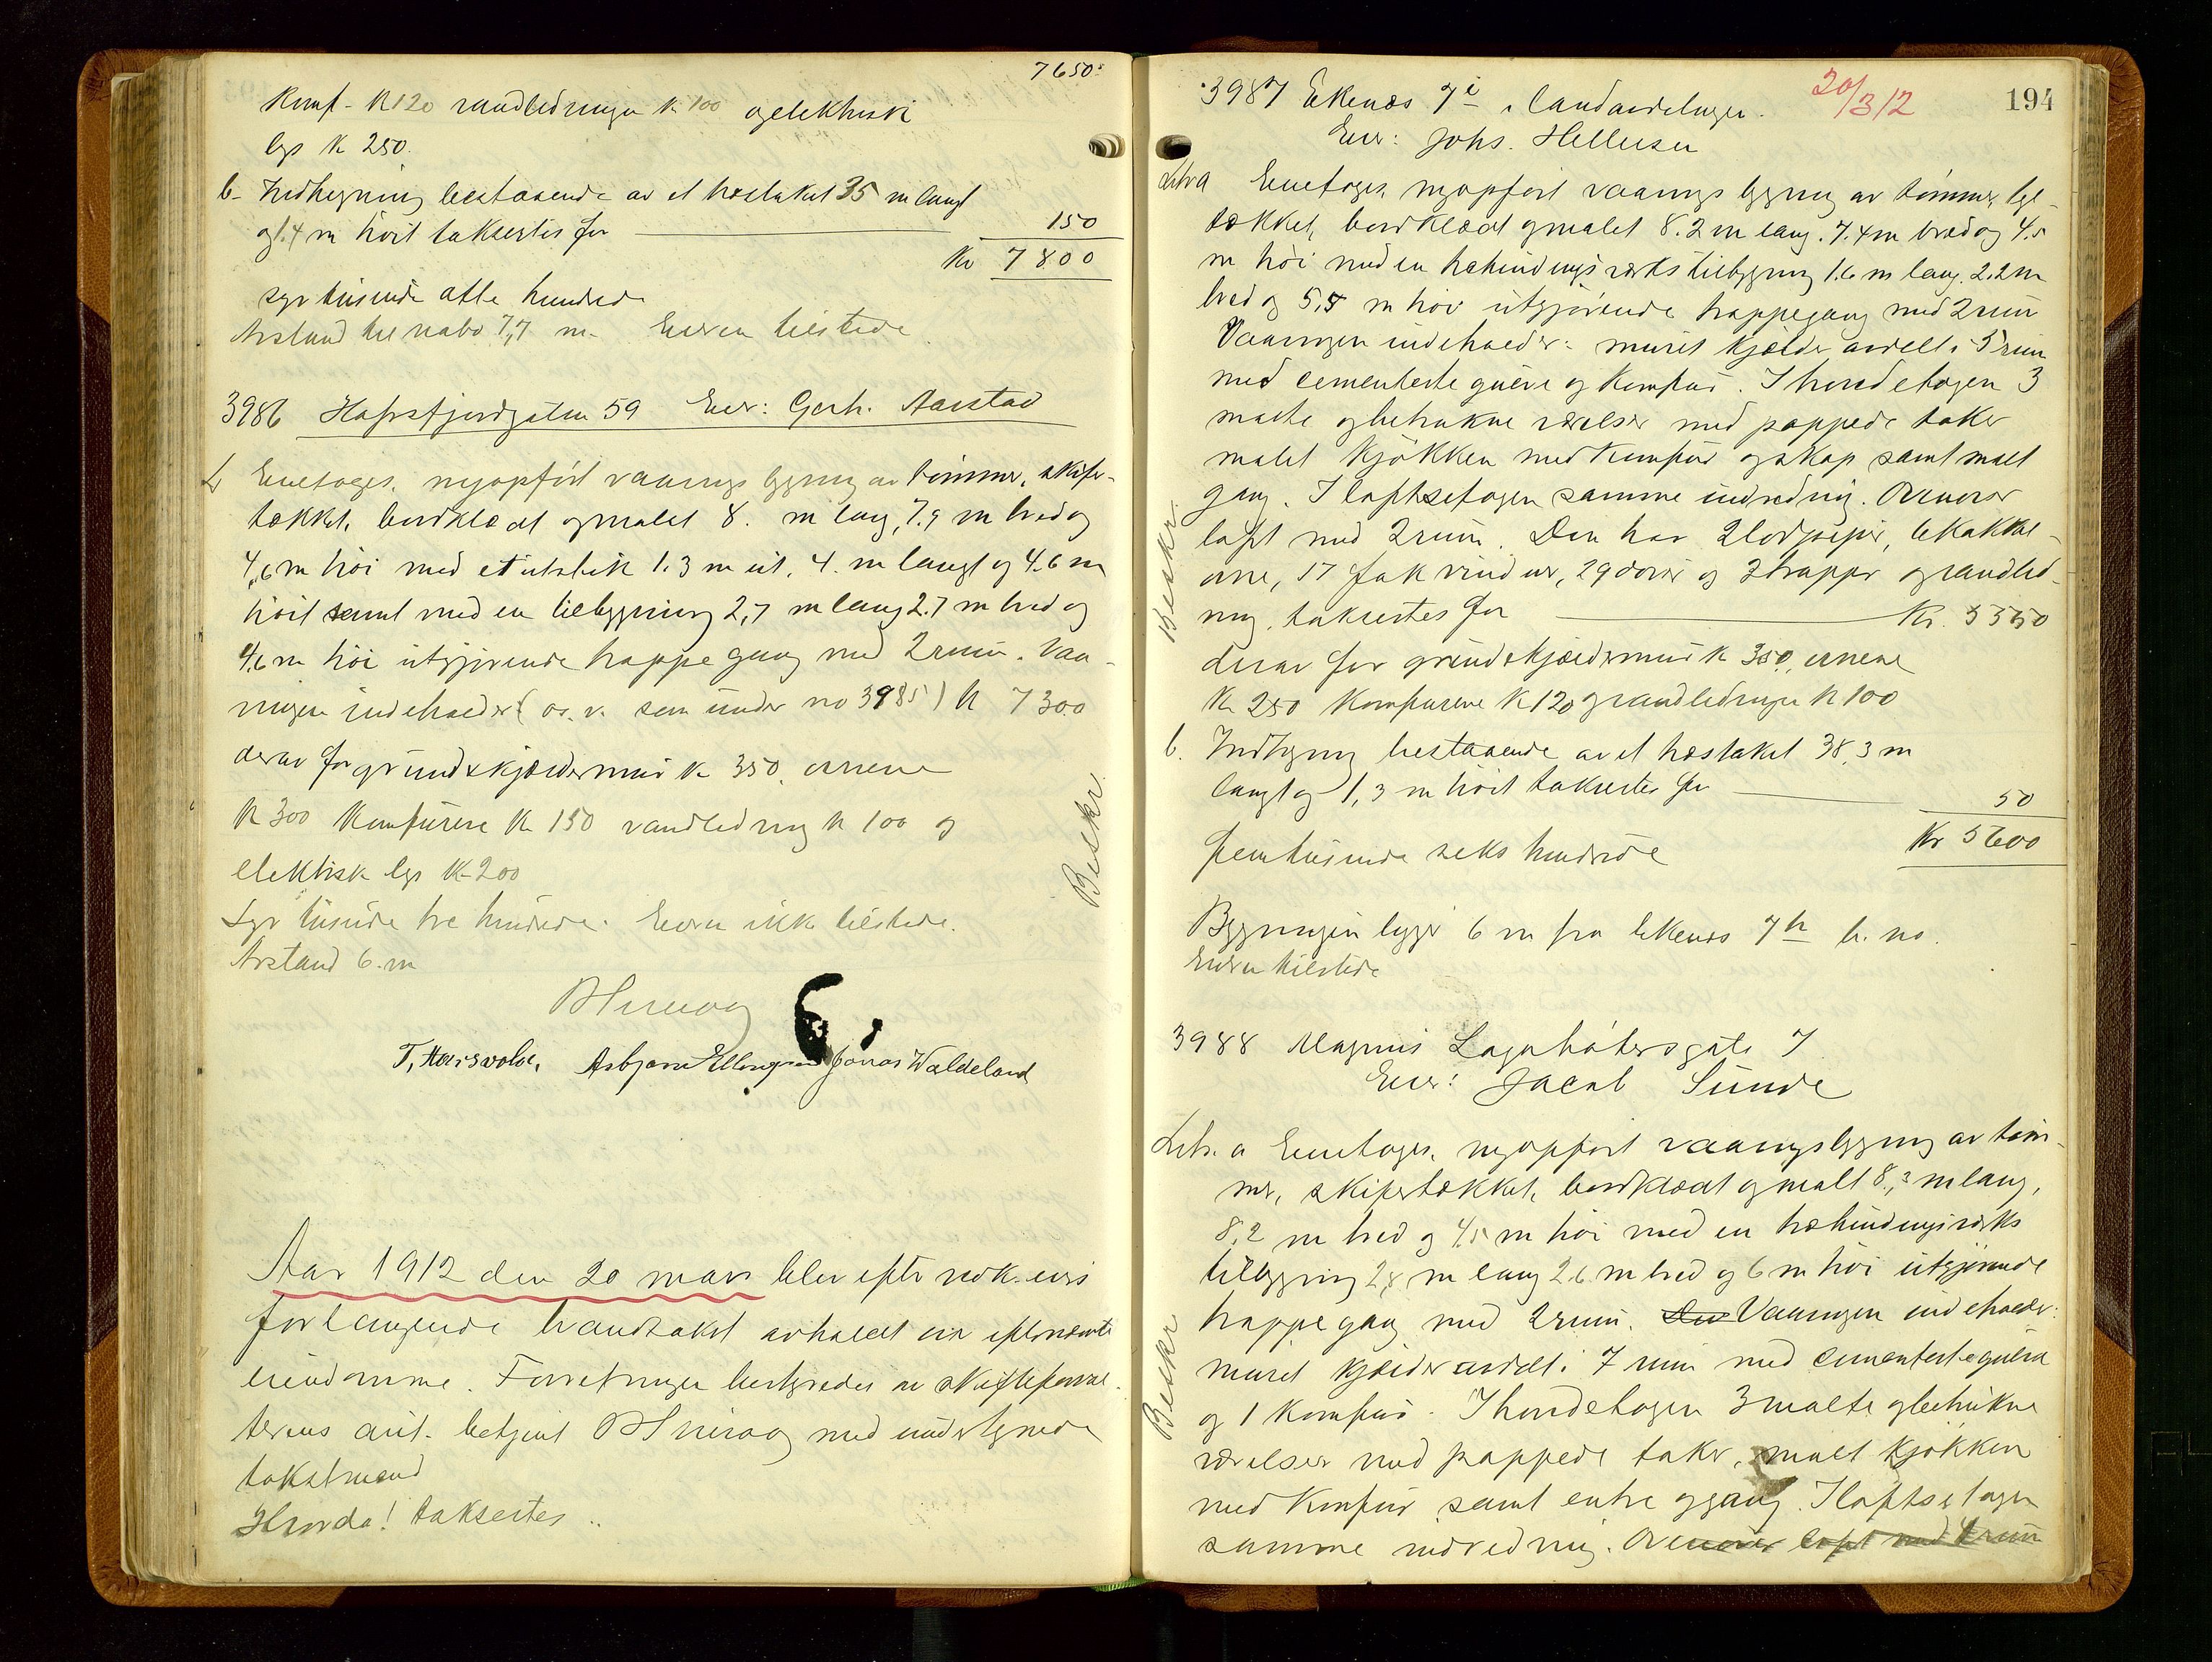 7650:
Komf. K 120 vandledninger K 100 og elektriski
lys K 250.
b- Indhegning bestaaende av et hæstaket 35 m langt
og 1.4 m høit taksertes for 150
Kr 7800
syv tusinde otte hundrede
Avstand til nabo 7,7 m. Eieren tilstede.
3986 Hafrsfjordgaten 59 Eier: Gerh. Aarstad
Enetages, nyopført vaaningsbygning av tømmer, skifer-
tækket, bordklædt og malet 8. m lang, 7.9 m bred og
4.6 m høi med et utstik 1.3 m ut, 4. m langt og 4.6 m
høit samt med en tilbygning 2,7 m lang 2.7 m bred og
4.6 m høi utgjørende trappegang med 2 rum. Vaa-
ningen indeholder (o.s.v. som under no 3985) K 7300
derav for grund & kjældermur K 350, ovnene
K 300 Komfurene K 150 vandledning K 100 og
elektrisk lys K 200
Syv tusinde tre hundrede. Eieren ikke tilstede.
Avstand 6. m
Beskr.
T. Hausvolde. Asbjørn Ellingsen Jonas Waldeland
Aar 1912 den 20 mars blev efter vedk. eiers
forlangende brandtakst avholdt over efternævnte
eiendomme. Forretningen bestyredes av skifteforval-
terens aut. betjent med undertegnede
takstmænd
Hvorda! taksertes..
3987 Ekenæs 7de i landavdelingen. 20/3 12 194
Eier: Johs. Hellesen
Litr a Enetages, nyopført vaaningsbygning av tømmer, tegl-
tækket, bordklædt og malet 8.2 m lang. 7.4 m bred og 4.5
m høi med en træbindingsværks tilbygning 1.6 m lang. 2.2 m
bred og 5,5 m høi utgjørende trappegang med 2 rum
Vaaningen indeholder: muret kjælder avdelt i 5 rum
med cementerte gulve og komfur. I hovedetagen 3
malte og betrukne værelser med pappede taker
malet kjøkken med komfur og skap samt malt
gang. I loftsetagen samme indredning. Ovenover
loft med 2 rum. Den har 2 lodpiper, 6 kakkel-
ovne, 17 fak vinduer, 29 dører og 3 trapper og vandled-
ning, taksertes for Kr. 5550
derav for grund & kjældermur K 350, ovnene
K 250 komfurene K 120 og vandledninger K 100
Beskr.
b. Indhegning bestaaende av et hæstaket 38,3 m
langt og 1,3 m høit taksertes for 50
femtusinde seks hundrede Kr 5600
Bygningen ligger 6 m fra Ekenæs 7de b. no.
Eieren tilstede
3988 Magnus Lagabøtersgate 7
Eier: Jacob Sunde
Litr. a Enetages, nyopført vaaningsbygning av tøm-
mer, skifertækket, bordklædt og malt 8,3 m lang,
8,2 m bred og 4.5 m høi med en træbindingsværks
tilbygning 2,8 m lang 2.6 m bred og 6 m høi utgjørende
trappegang med 2 rum. Den Vaaningen indeholder:
muret kjælder avdelt i 7 rum med cementerte gulve
og 1 komfur. I hovedetagen 3 malte og betrukne
værelser med pappede taker, malt kjøkken
med komfur samt entre og gang. I loftsetagen
samme indredning. Ovenover loft med 4 rum
Beskr